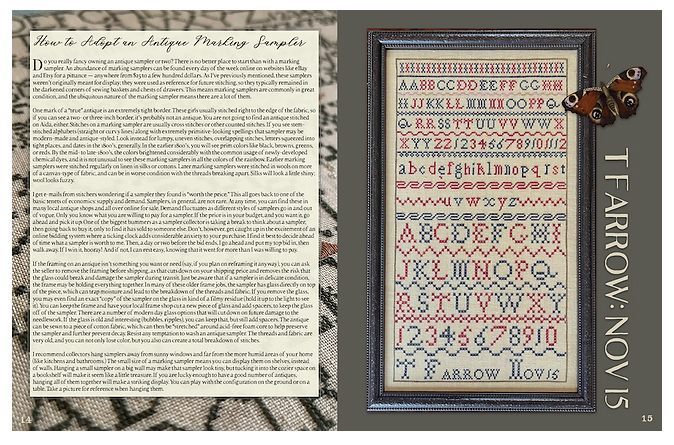 How to Adopt an Antique Marking Sampler
Do you really fancy owning an antique sampler or two? There is no better place to start than with a marking
sampler. An abundance of marking samplers can be found every day of the week online on websites like eBay
and Etsy for a pittance — anywhere from $25 to a few hundred dollars. As I've previously mentioned, these samplers
weren't originally meant for display; they were used as reference for future stitching, so they typically remained in
the darkened corners of sewing baskets and chests of drawers. This means marking samplers are commonly in great
condition, and the ubiquitous nature of the marking sampler means there are a lot of them.
One mark of a "true" antique is an extremely tight border. These girls usually stitched right to the edge of the fabric, so
if you can see a two- or three-inch border, it's probably not an antique. You are not going to find an antique stitched
on Aida, either. Stitches on a marking sampler are usually cross stitches or other counted stitches. If you see stem-
stitched alphabets (straight or curvy lines) along with extremely primitive-looking spellings that sampler may be
modern-made and antique-styled. Look instead for lumps, uneven stitches, overlapping stitches, letters squeezed into
tight places, and dates in the 1800's, generally. In the earlier 1800's, you will see prim colors like black, browns, greens,
or reds. By the mid- to late-1800's, the colors brightened considerably with the common usage of newly-developed
chemical dyes, and it is not unusual to see these marking samplers in all the colors of the rainbow. Earlier marking
samplers were stitched regularly on linens in silks or cottons. Later marking samplers were stitched in wools on more
of a canvas-type of fabric, and can be in worse condition with the threads breaking apart. Silks will look a little shiny,
wool looks fuzzy.
I get e-mails from stitchers wondering if a sampler they found is "worth the price." This all goes back to one of the
basic tenets of economics: supply and demand. Samplers, in general, are not rare. At any time, you can find these in
many local antique shops and all over online for sale. Demand fluctuates as different styles of samplers go in and out
of vogue. Only you know what you are willing to pay for a sampler. If the price is in your budget, and you want it, go
ahead and pick it up! One of the biggest bummers as a sampler collector is taking a break to think about a sampler,
then going back to buy it, only to find it has sold to someone else. Don't, however, get caught up in the excitement of an
online bidding system where a ticking clock adds considerable anxiety to your purchase. I find it best to decide ahead
of time what a sampler is worth to me. Then, a day or two before the bid ends, I go ahead and put my top bid in, then
walk away. If I win it, hooray! And if not, I can rest easy, knowing that it went for more than I was willing to pay.
If the framing on an antique isn't something you want or need (say, if you plan on reframing it anyway), you can ask
the seller to remove the framing before shipping, as that cuts down on your shipping price and removes the risk that
the glass could break and damage the sampler during transit. Just be aware that if a sampler is in delicate condition,
the frame may be holding everything together. In many of these older frame jobs, the sampler has glass directly on top
of the piece, which can trap moisture and lead to the breakdown of the threads and fabric. If you remove the glass,
you may even find an exact "copy" of the sampler on the glass in kind of a filmy residue (hold it up to the light to see
it). You can keep the frame and have your local frame shop cut a new piece of glass and add spacers, to keep the glass
off of the sampler. There are a number of modern day glass options that will cut down on future damage to the
needlework. If the glass is old and interesting (bubbles, ripples), you can keep that, but still add spacers. The antique
can be sewn to a piece of cotton fabric, which can then be "stretched" around acid-free foam core to help preserve
the sampler and further prevent decay. Resist any temptation to wash an antique sampler. The threads and fabric are
very old, and you can not only lose color, but you also can create a total breakdown of stitches.
I recommend collectors hang samplers away from sunny windows and far from the more humid areas of your home
(like kitchens and bathrooms.) The small size of a marking sampler means you can display them on shelves, instead
of walls. Hanging a small sampler on a big wall may make that sampler look tiny, but tucking it into the cozier space on
a bookshelf will make it seem like a little treasure. If you are lucky enough to have a good number of antiques,
hanging all of them together will make a striking display. You can play with the configuration on the ground or on a
table. Take a picture for reference when hanging them.
14
AABBCCDDEEFFGGHH
IIJJKKLLMMNNOOPPQ
Q RRSSTTUVVWWX
XYZZ1234567891011
abcdefghiklmnopqrst
uvwxyz
ABCDEFGHI
JKLMNOPQ
RSTUVWXYZ
1234567891011
T F ARROW NOV 15
T F ARROW: NOV 15
15